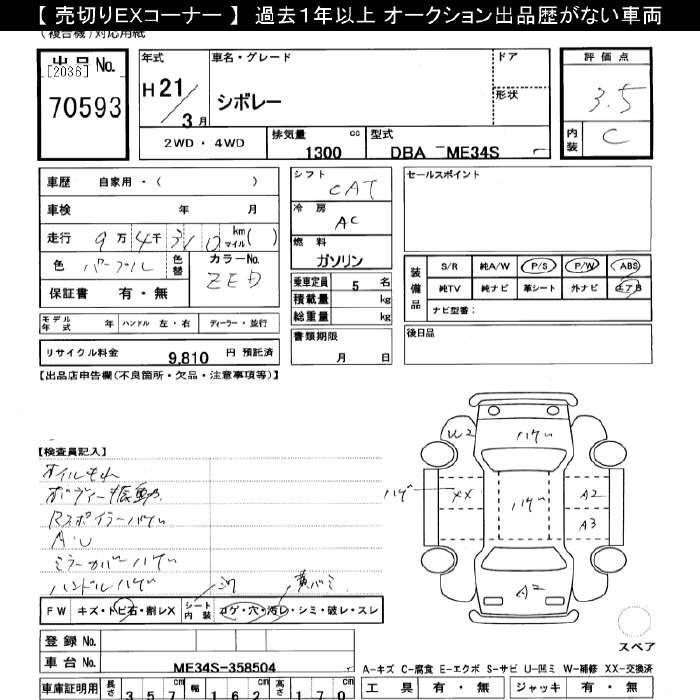 【 売切りEXコーナー 】 過去１年以上 オークション出品歴がない車両
(複合機)対応用紙
出品 No.
[2036]
70593
年式
H 21 / 3 月
車名・グレード
シボレー
ドア
形状
2WD ・ 4WD
排気量 cc
1300
型式
DBA － ME34S
評価点
3.5
内装
C
車歴 自家用・( )
車検 年 月
走行 9万 4千 3 1 0 km マイル ( )
色 パープル 色替 カラーNo. ZED
保証書 有・無
シフト
CAT
冷房
AC
燃料
ガソリン
乗車定員 5 名
積載量 kg
総重量 kg
セールスポイント
装備品
S/R 純A/W P/S P/W ABS
純TV 純ナビ 革シート 外ナビ エアB
ナビ型番：
モデル年式 年 ハンドル 左・右 ディーラー・並行
書類期限
月 日
後日品
リサイクル料金 9,810 円 預託済
【出品店申告欄(不良箇所・欠品・注意事項等)】
【検査員記入】
オイルもれ
ボディー振動
Rスポイラーハゲ
A・U
ミラーカバーハゲ
ハンドルハゲ
W2
ハゲ
ハゲ
XX
ハゲ
A2
A3
A2
FW キズ・トビ石・割レX シート内装 コゲ・穴・汚レ・シミ・破レ・スレ
登録 No.
車台 No. ME34S-358504
スペア
A-キズ C-腐食 E-エクボ S-サビ U-凹ミ W-補修 XX-交換済
車庫証明用 長さ 3 5 7 cm 幅 1 6 2 cm 高さ 1 7 0 cm
工具 有・無 ジャッキ 有・無